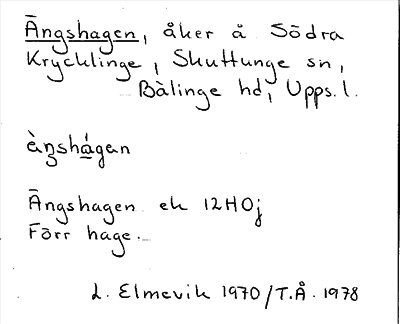 Ängshagen, åker å Södra
Krycklinge, Skuttunge sn,
Bälinge hd, Upps. l.
ä̀ŋshágan
Ängshagen ek 12H0j
Förr hage.
L. Elmevik 1970/T.Å. 1978